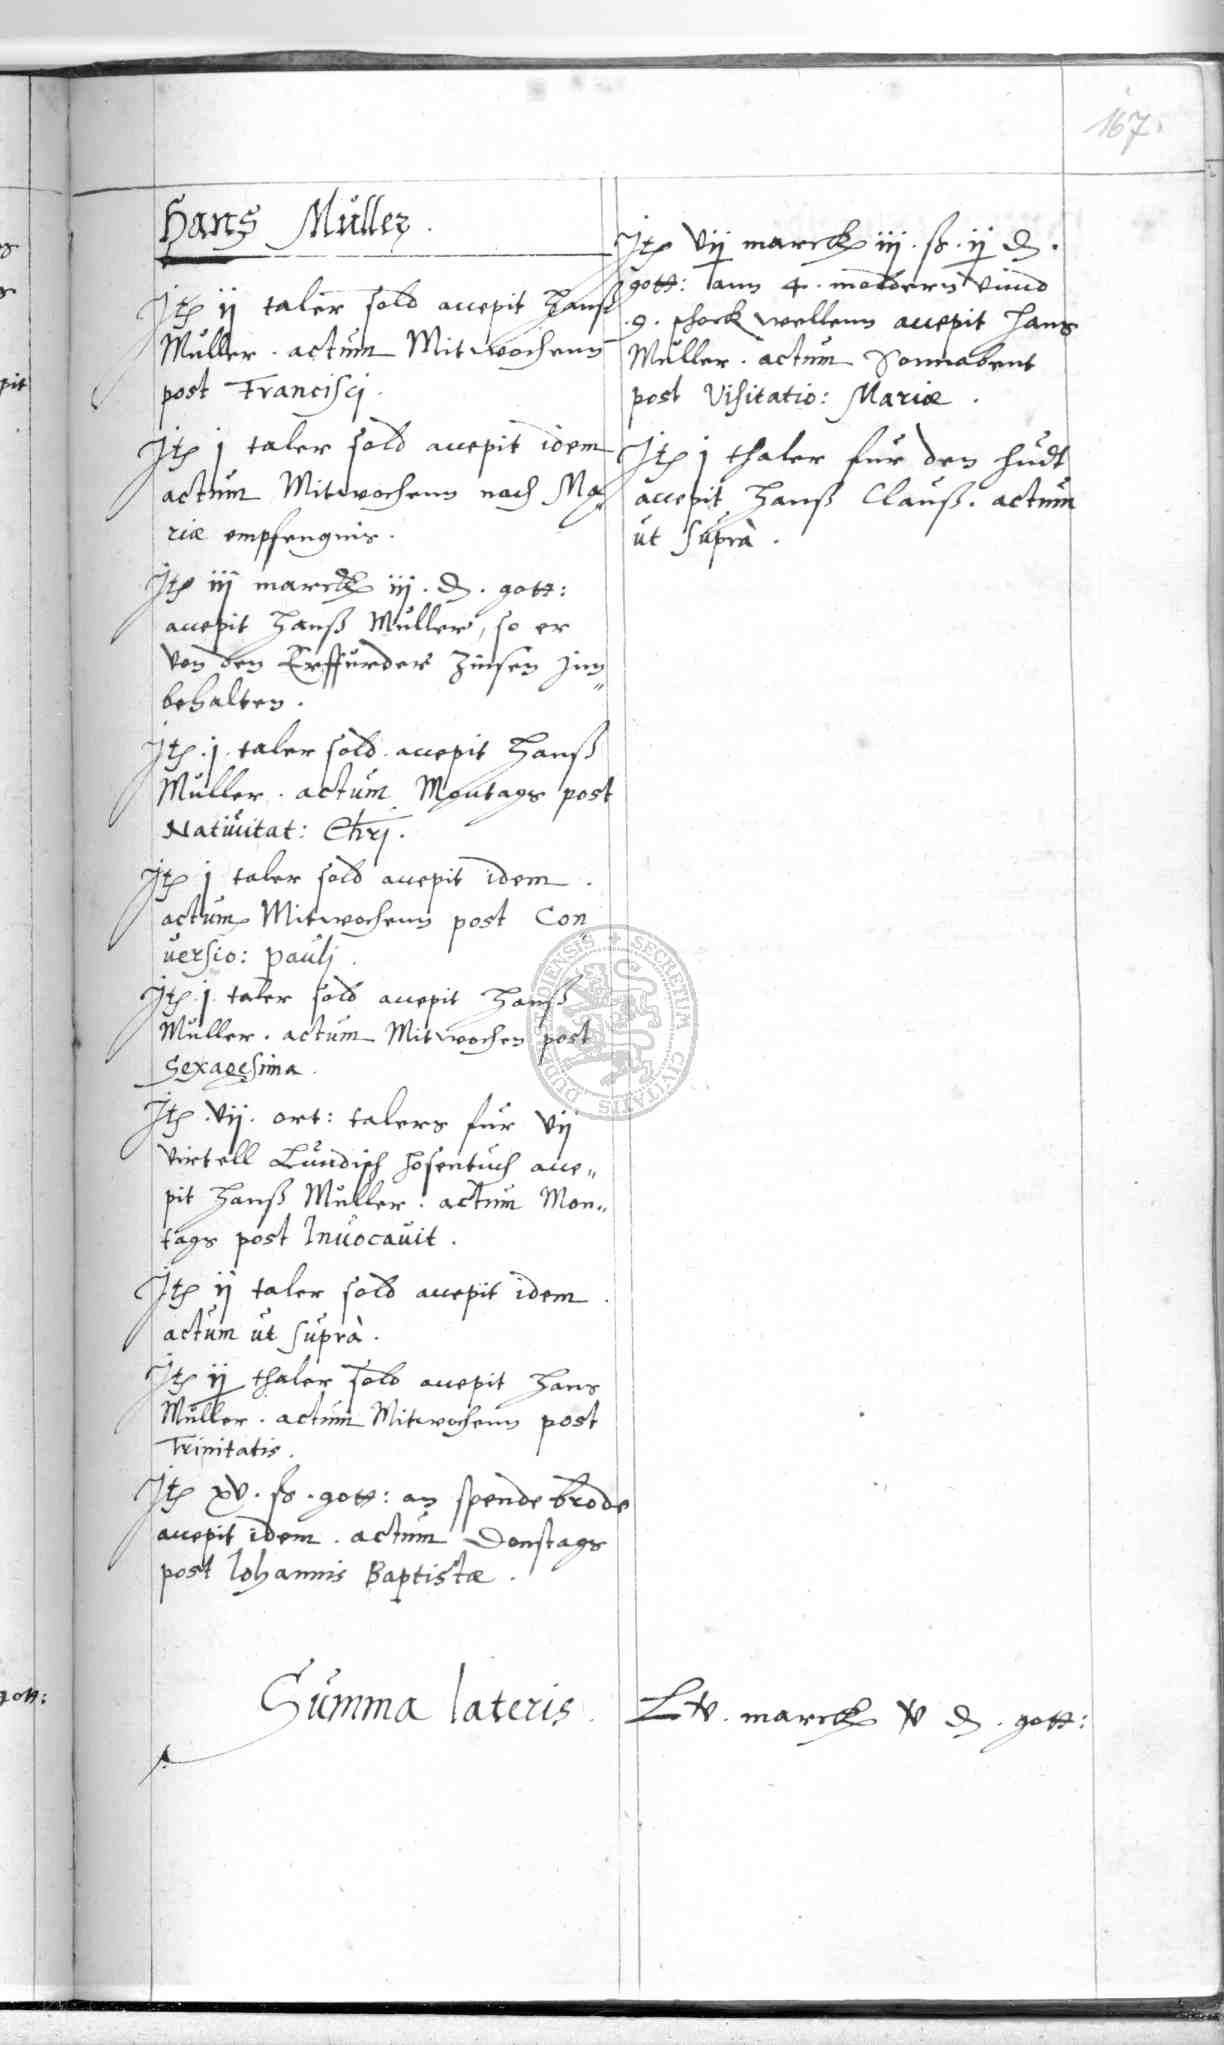 167.
Hans Müller.
Jtem ij taler sold accepit Hanß
Müller. actum Mitwochenn
post Francisci.
Jtem j taler sold accepit idem
actum Mitwochenn nach Ma„
riæ empfengnis.
Jtem iij marck iij. d. gott:
accepit Hanß Müller, so er
von den Erffurder Zinsen jnn„
behalten.
Jtem .j. taler sold accepit Hanß
Müller. actum Montags post
Natiuitat: Chrj.
Jtem j taler sold accepit idem.
actum Mitwochenn post Con„
uersio: paulj.
Jtem .j. taler sold accepit Hanß
Müller. actum Mitwochen post
Sexagesima.
Jtem .vij. ort: talers für vij
virtell Lündisch hosentuch acce„
pit Hanß Müller. actum Mon„
tags post Inuocauit.
Jtem ij taler sold accepit idem.
actum ut suprà.
Jtem ij thaler sold accepit Hans
Müller. actum Mitwochenn post
Trinitatis.
Jtem xv. ß. gott: an spende brode
accepit idem. actum Donstags
post Iohannis Baptistæ.
Jtem vij marck iij. ß. ij d.
gott: ann 4. moldern vnnd
.9. schock wellenn accepit Hans
Müller. actum Sonnabent
post Visitatio: Mariæ.
Jtem j thaler für den hudt
accepit Hanß Clauß. actum
ut suprà.
Summa lateris. Lv. marck v d. gott:
pit
gott:
SECRETUM CIVITATIS DUDERSTADENSIS